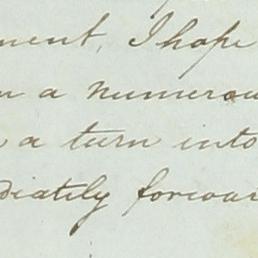 ment, I hope
a numerou
a turn into
diately forwar